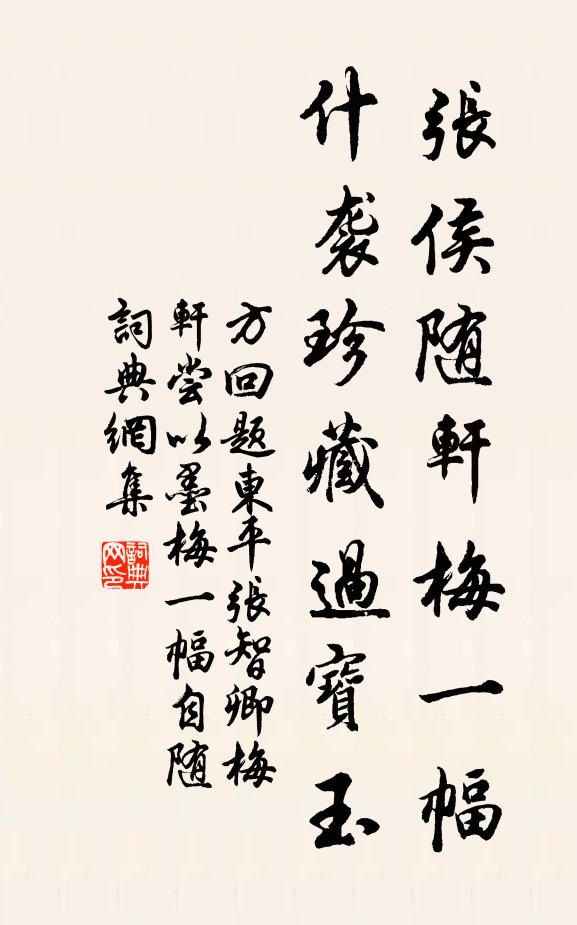 張侯随軒梅一幅
什袭珍藏過寶玉
方回题東平張智卿梅
軒嘗以墨梅一幅自随
詞典網集
詞典
网印